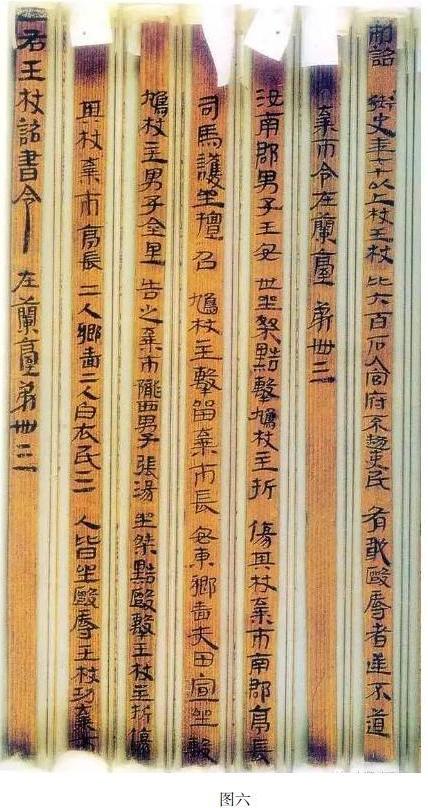 制詔 御史年七十以上杖王杖 比六百石入官府不趨吏民 有敢毆辱者逆不道
棄市令在蘭臺第卌三
汝南郡男子王安 世坐桀黠擊鳩杖主折 傷其杖棄市南郡亭長
司馬護坐擅召 鳩杖主擊留棄市長 安東鄉嗇夫田宣坐毄
鳩杖主男子金里 告之棄市隴西男子 張湯坐桀黠毆擊王杖主折傷
其杖棄市亭長二人鄉嗇二人白衣民三 人皆坐毆辱王杖功棄市
右王杖詔書令 在蘭臺第卌三
图六